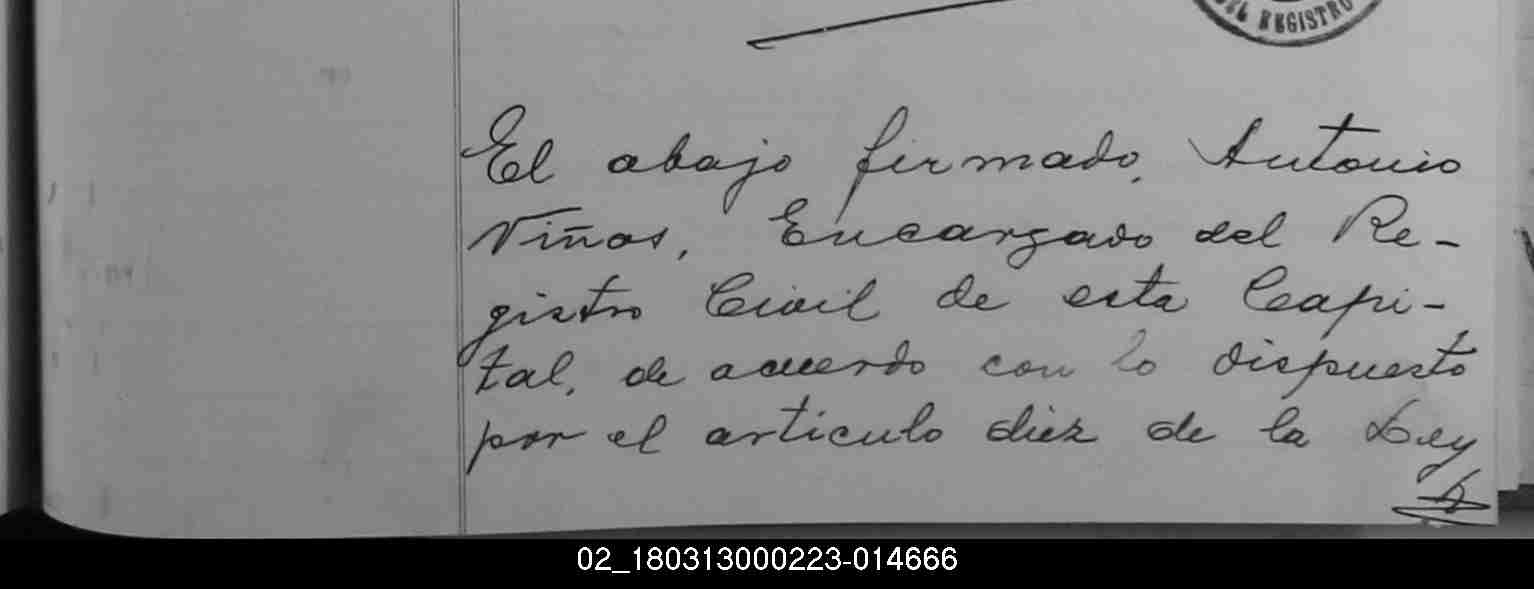 DEL REGISTRO
El abajo firmado, Antonio
Viñas, Encargado del Re-
gistro Civil de esta Capi-
tal, de acuerdo con lo dispuesto
por el articulo diez de la Ley
02_180313000223-014666